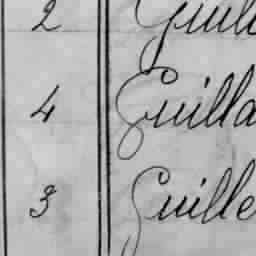 2 Guill
4 Guilla
3 Guille